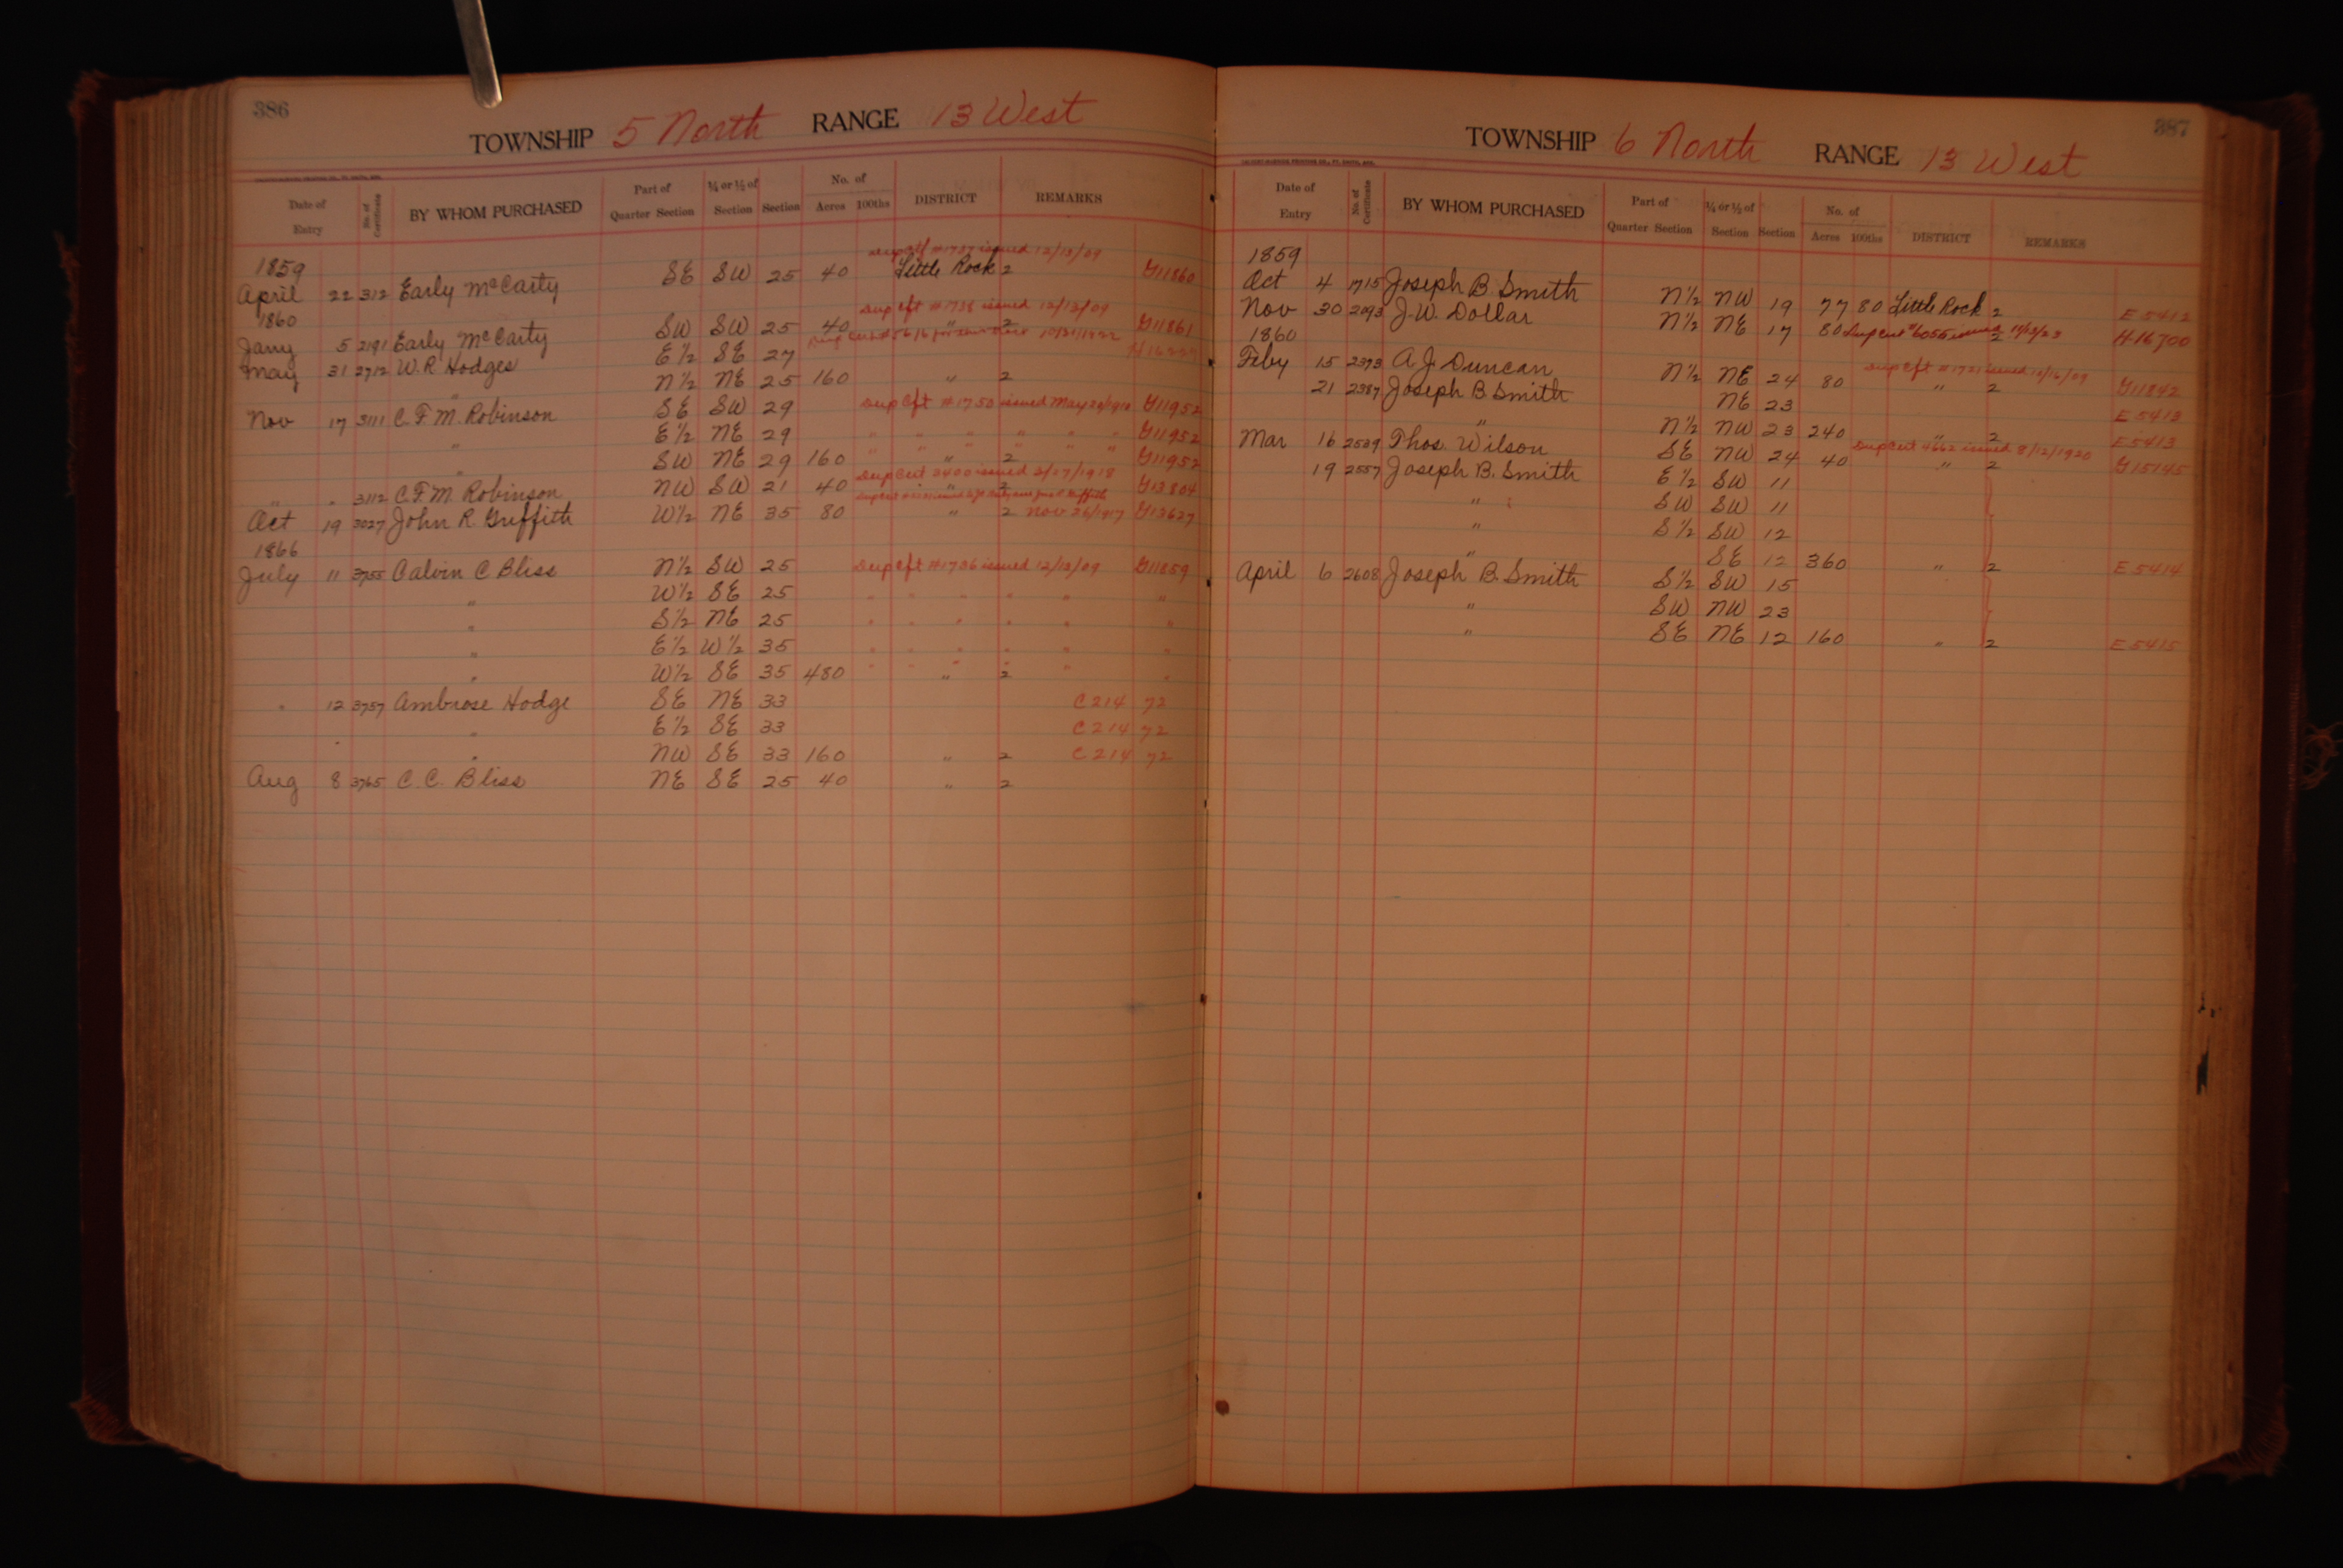 386
TOWNSHIP 5 North RANGE 13 West
Date of Entry No. of Certificate BY WHOM PURCHASED Part of Quarter Section ¼ or ½ of Section Section No. of Acres 100ths DISTRICT REMARKS
1859 Dup Cft #1737 issued 12/13/09
April 22 312 Early McCarty SE SW 25 40 Little Rock 2 G11860
1860 Dup Cft #1738 issued 12/13/09
Jany 5 2191 Early McCarty SW SW 25 40 " 2 G11861
May 31 2712 W. R. Hodges E½ SE 27
" N½ NE 25 160 " 2
Nov 17 3111 C. F. M. Robinson SE SW 29 Dup Cft #1750 issued May 24/1910 G11952
" E½ NE 29 " " " " " " G11952
" SW NE 29 160 " 2 G11952
Dup Cert 3400 issued 3/27/1918
" " 3112 C. F. M. Robinson NW SW 21 40 " 2 G13804
Oct 19 3027 John R. Griffith W½ NE 35 80 " 2 Nov 26/1917 G13627
1866
July 11 3755 Calvin C Bliss N½ SW 25 Dup Cft #1736 issued 12/13/09 G11859
" W½ SE 25 " " " " " "
" S½ NE 25 " " " " " "
" E½ W½ 35 " " " " " "
" W½ SE 35 480 " 2 "
" 12 3757 Ambrose Hodge SE NE 33 C214 72
" E½ SE 33 C214 72
" NW SE 33 160 " 2 C214 72
Aug 8 3765 C. C. Bliss NE SE 25 40 " 2
387
TOWNSHIP 6 North RANGE 13 West
Date of Entry No. of Certificate BY WHOM PURCHASED Part of Quarter Section ¼ or ½ of Section Section No. of Acres 100ths DISTRICT REMARKS
1859
Oct 4 1715 Joseph B. Smith N½ NW 19 77 80 Little Rock 2 E5412
Nov 30 2093 J. W. Dollar N½ NE 17 80 Dup Cert #6055 issued 2 H16700
1860
Feby 15 2373 A. J. Duncan N½ NE 24 80 " 2 G11842
21 2387 Joseph B. Smith NE 23 E5413
" N½ NW 23 240 " 2 E5413
Dup Cert 4662 issued 8/12/1920
Mar 16 2539 Thos. Wilson SE NW 24 40 " 2 G15145
19 2557 Joseph B. Smith E½ SW 11
" SW SW 11
" S½ SW 12
" SE 12 360 " 2 E5414
April 6 2608 Joseph B. Smith S½ SW 15
" SW NW 23
" SE NE 12 160 " 2 E5415